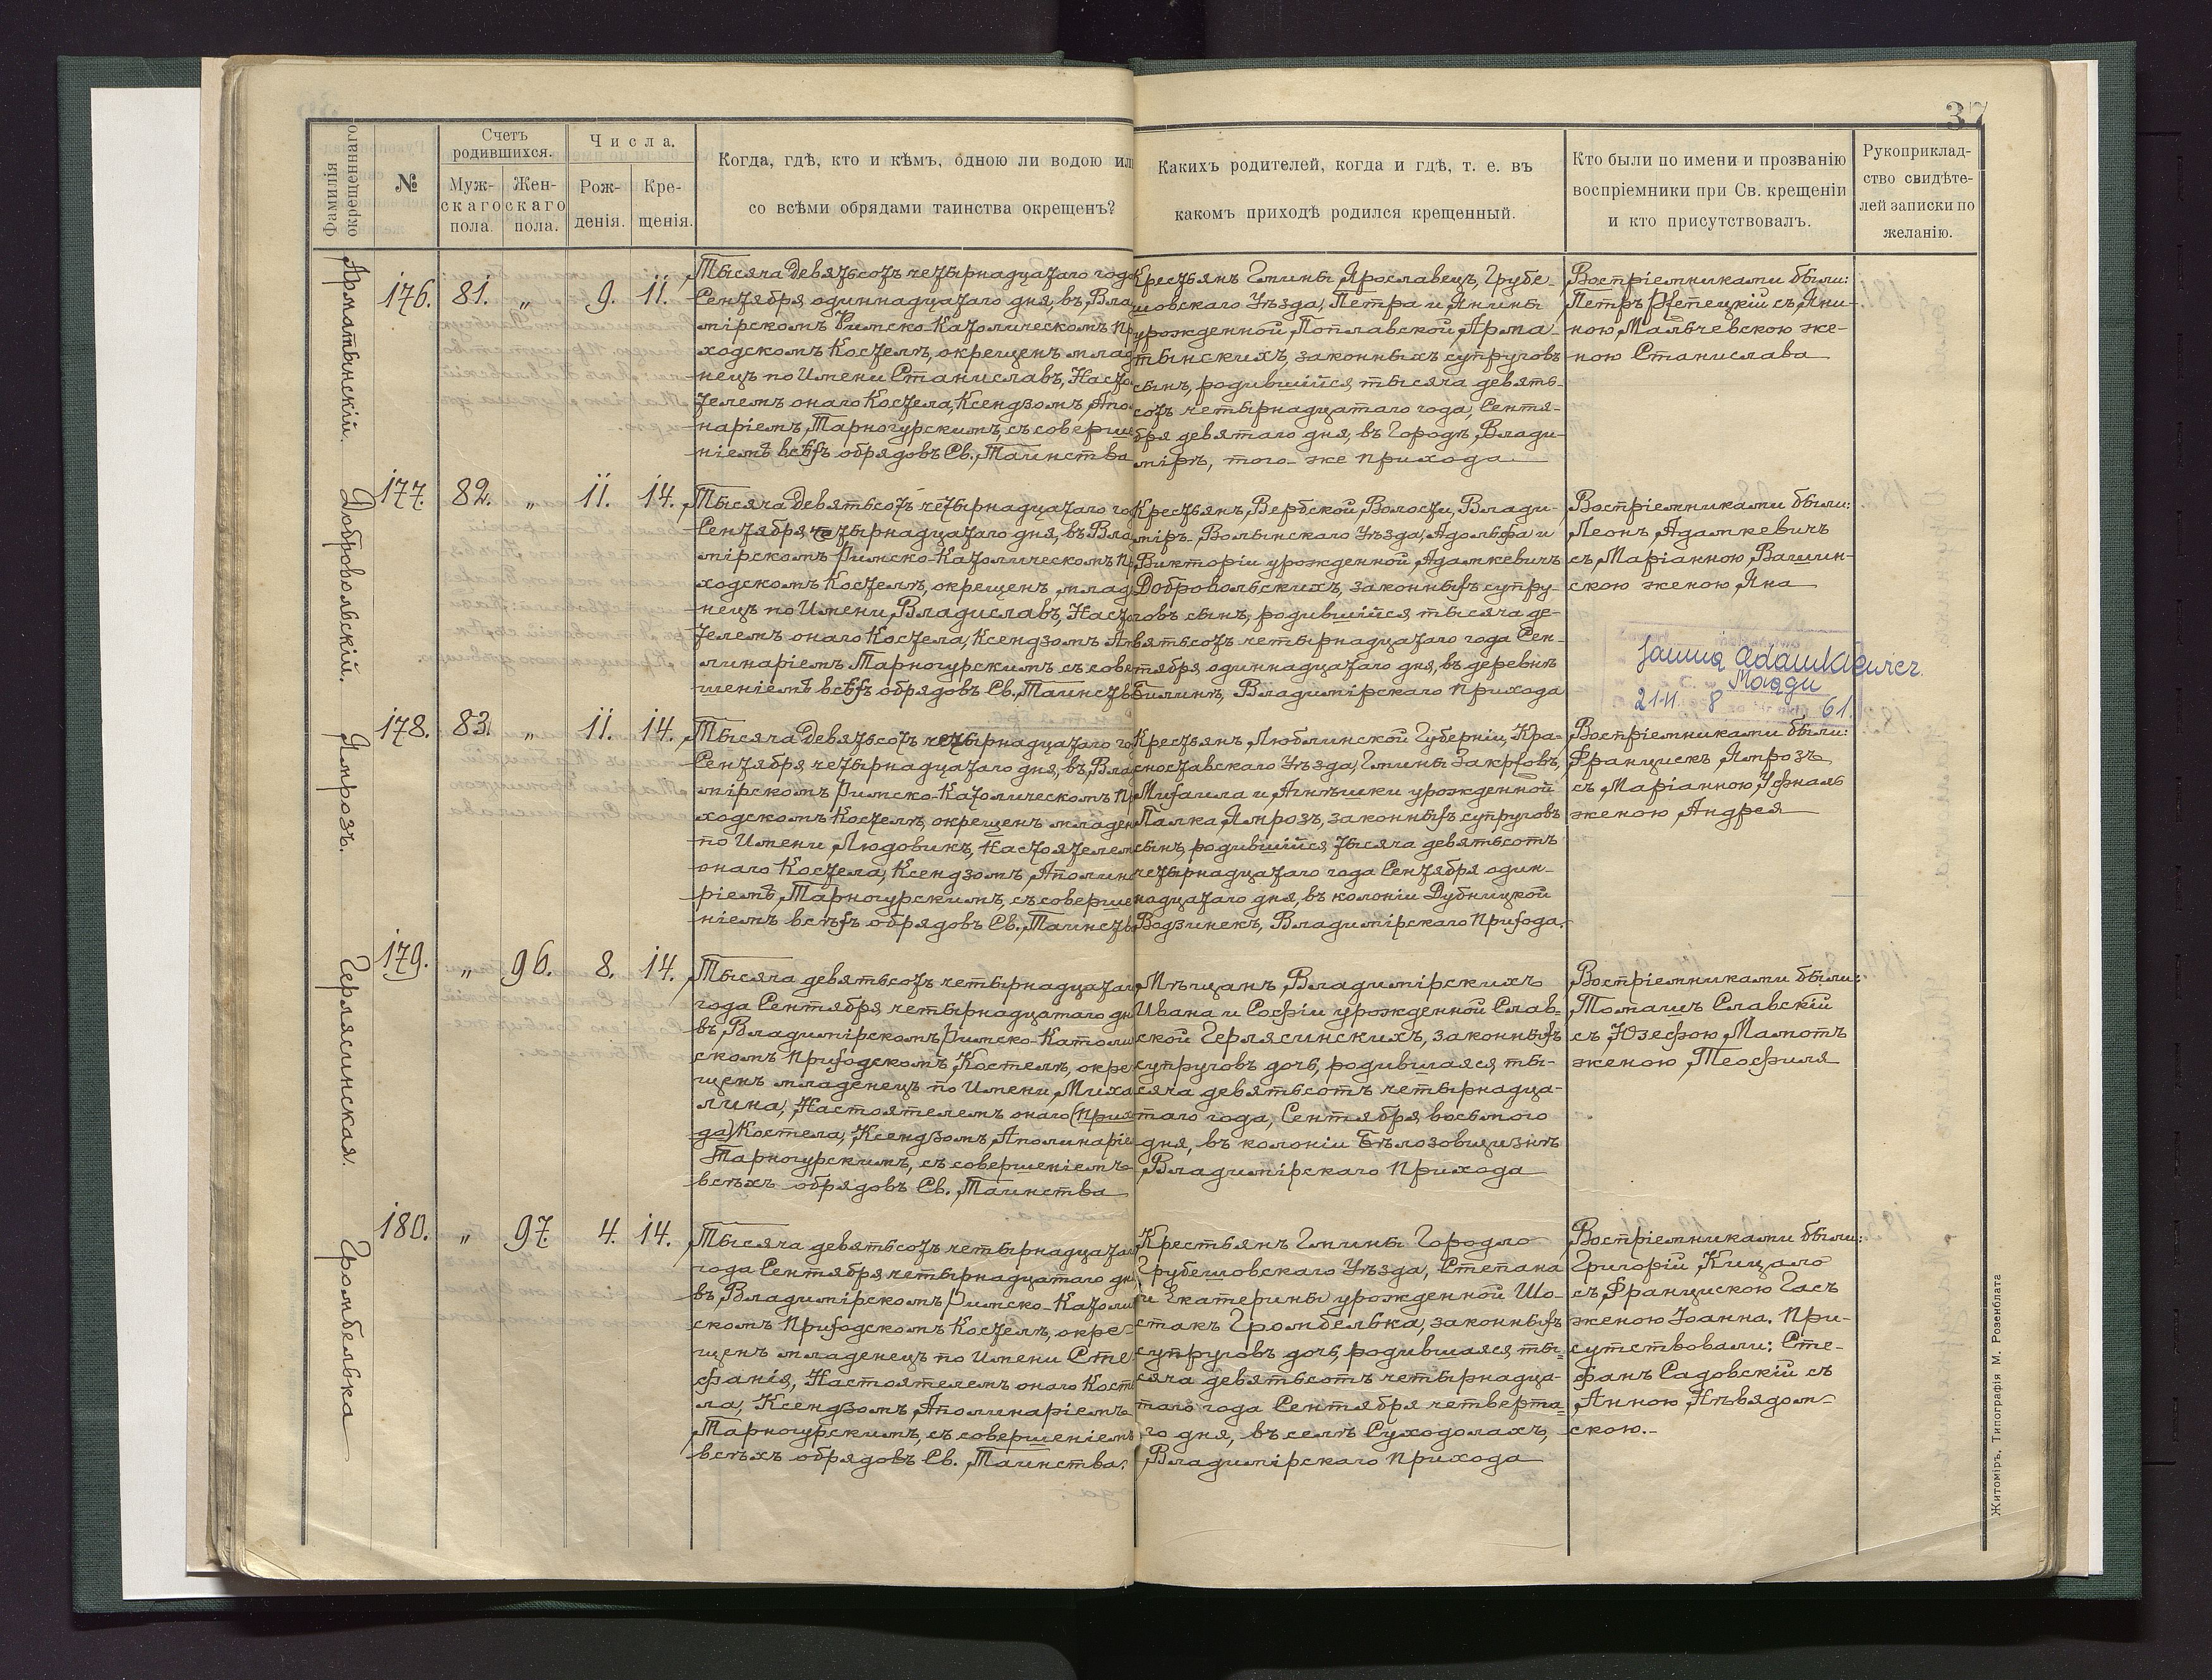 37
Фамилія окрещеннаго
№
Счетъ родившихся.
Муж-
скаго
пола.
Жен-
скаго
пола.
Числа.
Рож-
денія.
Кре-
щенія.
Когда, гдѣ, кто и кѣмъ, одною ли водою или
со всѣми обрядами таинства окрещенъ?
Какихъ родителей, когда и гдѣ, т. е. въ
какомъ приходѣ родился крещенный.
Кто были по имени и прозванію
воспріемники при Св. крещеніи
и кто присутствовалъ.
Рукоприклад-
ство свидѣте-
лей записки по
желанію.
Арматынскій.
176. 81. „ 9. 11.
Тысяча девятьсотъ четырнадцатаго года
Сентября одиннадцатаго дня, въ Влад
мірскомъ Римско-Католическомъ Пр
ходскомъ Костелѣ, окрещенъ млад
нецъ по Имени Станиславъ, Насто
телемъ онаго Костела, Ксендзомъ Апо
наріемъ Тарногурскимъ, съ соверше
ніемъ всѣхъ обрядовъ Св. Таинства
Крестьянъ Гмины Ярославецъ, Грубе-
шовскаго Уѣзда, Петра и Янины
урожденной Поплавской Арма-
тынскихъ, законныхъ супруговъ
сынъ, родившійся тысяча девять-
сотъ четырнадцатаго года, Сентя-
бря девятаго дня, въ Городѣ Влади-
мірѣ, того-же прихода
Воспріемниками были:
Петръ Рѣпецкій съ Яни-
ною Мальчевскою же-
ною Станислава
Добровольскій.
177. 82. „ 11. 14.
Тысяча девятьсотъ четырнадцатаго го
Сентября четырнадцатаго дня, въ Вла
мірскомъ Римско-Католическомъ Пр
ходскомъ Костелѣ, окрещенъ млад
нецъ по Имени Владиславъ, Насто
телемъ онаго Костела, Ксендзомъ Ап
линаріемъ Тарногурскимъ съ сове
шеніемъ всѣхъ обрядовъ Св. Таинств
Крестьянъ Вербской Волости, Влади-
міръ-Волынскаго Уѣзда, Адольфа и
Викторіи урожденной Адамкевичъ
Добровольскихъ, законныхъ супру-
говъ сынъ, родившійся тысяча де-
вятьсотъ четырнадцатаго года Сен-
тября одиннадцатаго дня, въ деревнѣ
Билинѣ, Владимірскаго прихода
Воспріемниками были:
Леонъ Адамкевичъ
съ Маріанною Вашин-
скою женою Яна
Janina Adamkiewicz
Magdu
21-II 8 61.
Ямрозъ.
178. 83. „ 11. 14.
Тысяча девятьсотъ четырнадцатаго го
Сентября четырнадцатаго дня, въ Вла
мірскомъ Римско-Католическомъ Пр
ходскомъ Костелѣ, окрещенъ младен
по Имени Людовикъ, Настоятелем
онаго Костела, Ксендзомъ Аполина
ріемъ Тарногурскимъ, съ соверше
ніемъ всѣхъ обрядовъ Св. Таинств
Крестьянъ Люблинской Губерніи, Кра-
сноставскаго Уѣзда, Гмины Закржовъ,
Михаила и Агнѣшки урожденной
Палка Ямрозъ, законныхъ супруговъ
сынъ, родившійся тысяча девятьсотъ
четырнадцатаго года Сентября один-
надцатаго дня, въ колоніи Дубницкой
Водзинекъ, Владимірскаго Прихода.
Воспріемниками были:
Францискъ Ямрозъ
съ Маріанною Уфналь
женою Андрея
Герлясинская.
179. „ 96. 8. 14.
Тысяча девятьсотъ четырнадцатаго
года Сентября четырнадцатаго дн
въ Владимірскомъ Римско-Католи
скомъ Приходскомъ Костелѣ, окре
щенъ младенецъ по Имени Миха
лина, Настоятелемъ онаго (Прихо
да) Костела, Ксендзомъ Аполинаріе
Тарногурскимъ, съ совершеніемъ
всѣхъ обрядовъ Св. Таинства
Мѣщанъ Владимірскихъ
Ивана и Софіи урожденной Слав-
ской Герлясинскихъ, законныхъ
супруговъ дочь, родившаяся ты-
сяча девятьсотъ четырнадца-
таго года, Сентября восьмого
дня, въ колоніи Бѣлозовщизнѣ
Владимірскаго Прихода
Воспріемниками были:
Томашъ Славскій
съ Юзефою Мамотъ
женою Теофиля
Громбелька
180. „ 97. 4. 14.
Тысяча девятьсотъ четырнадцатаго
года Сентября четырнадцатаго дн
въ Владимірскомъ Римско-Католи
скомъ Приходскомъ Костелѣ, окре-
щенъ младенецъ по Имени Сте-
фанія, Настоятелемъ онаго Косте
ла, Ксендзомъ Аполинаріемъ
Тарногурскимъ, съ совершеніемъ
всѣхъ обрядовъ Св. Таинства.
Крестьянъ Гмины Городло
Грубешовскаго Уѣзда, Степана
и Екатерины урожденной Шо-
стакъ Громбелька, законныхъ
супруговъ дочь, родившаяся ты-
сяча девятьсотъ четырнадца-
таго года Сентября четверта-
го дня, въ селѣ Суходолахъ,
Владимірскаго прихода
Воспріемниками были:
Григорій Кицало
съ Францискою Гасъ
женою Іоанна. При-
сутствовали: Сте-
фанъ Садовскій съ
Анною Нѣвядом-
скою.-
Житоміръ, Типографія М. Розенблата